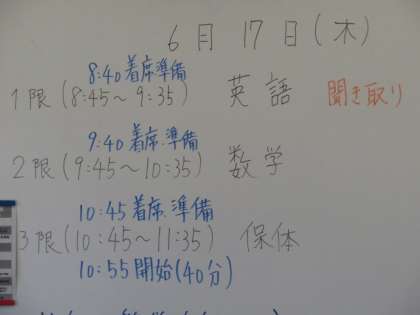 6月17日(木)
8:40着席準備
1限(8:45～9:35) 英語 聞き取り
9:40着席.準備
2限(9:45～10:35) 数学
10:45着席.準備
3限(10:45～11:35) 保体
10:55開始(40分)